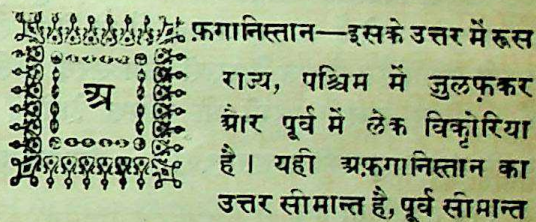 अफ़गानिस्तान—इसके उत्तर में रूस
राज्य, पश्चिम में जुलफ़कर
और पूर्व में लेक विक्टोरिया
है। यही अफ़गानिस्तान का
उत्तर सीमान्त है, पूर्व सीमान्त